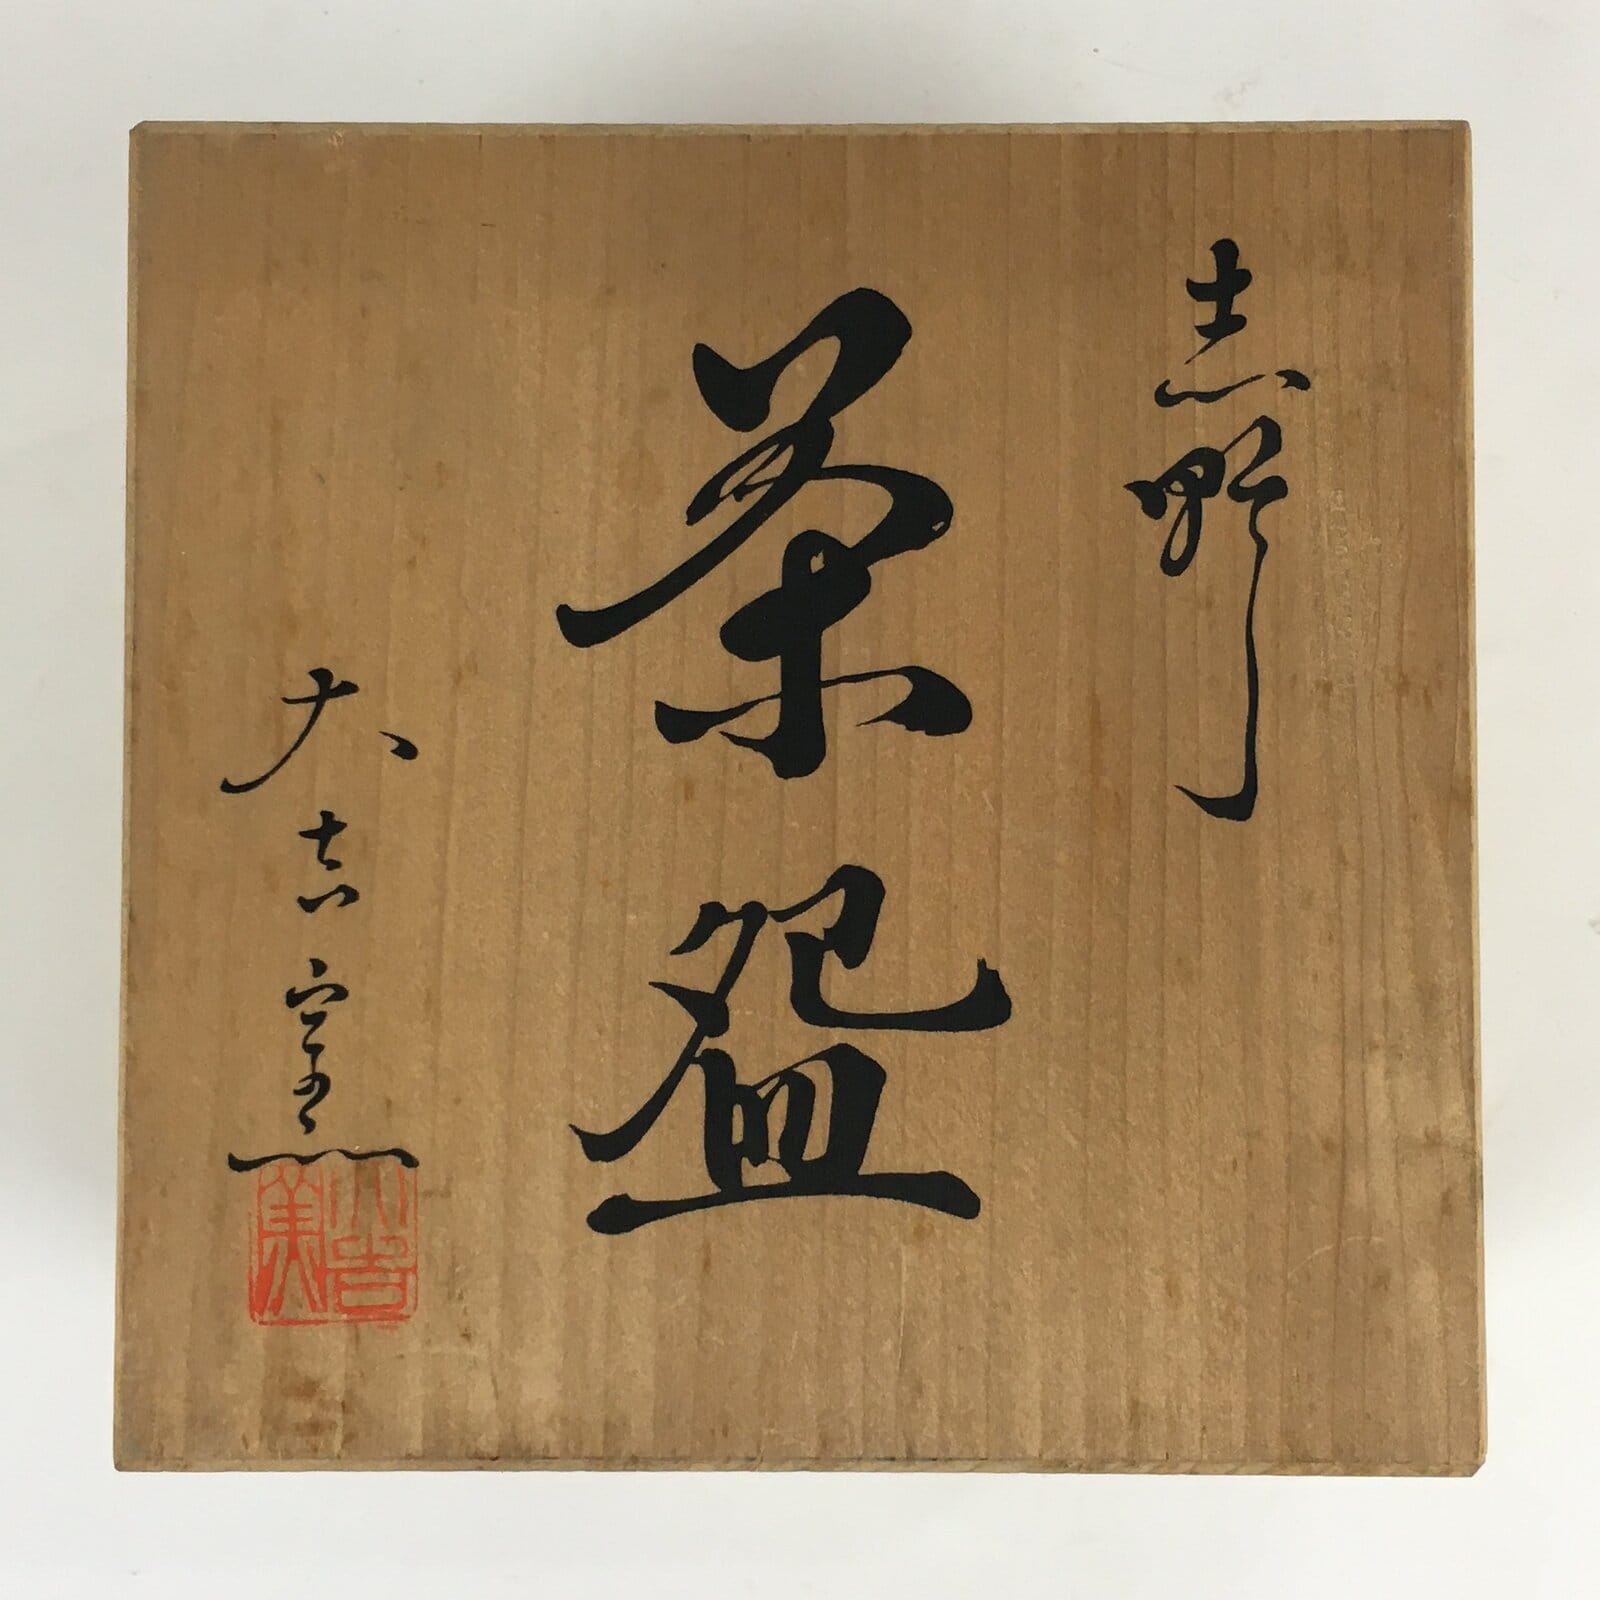 志野
茶盌
大吉窯